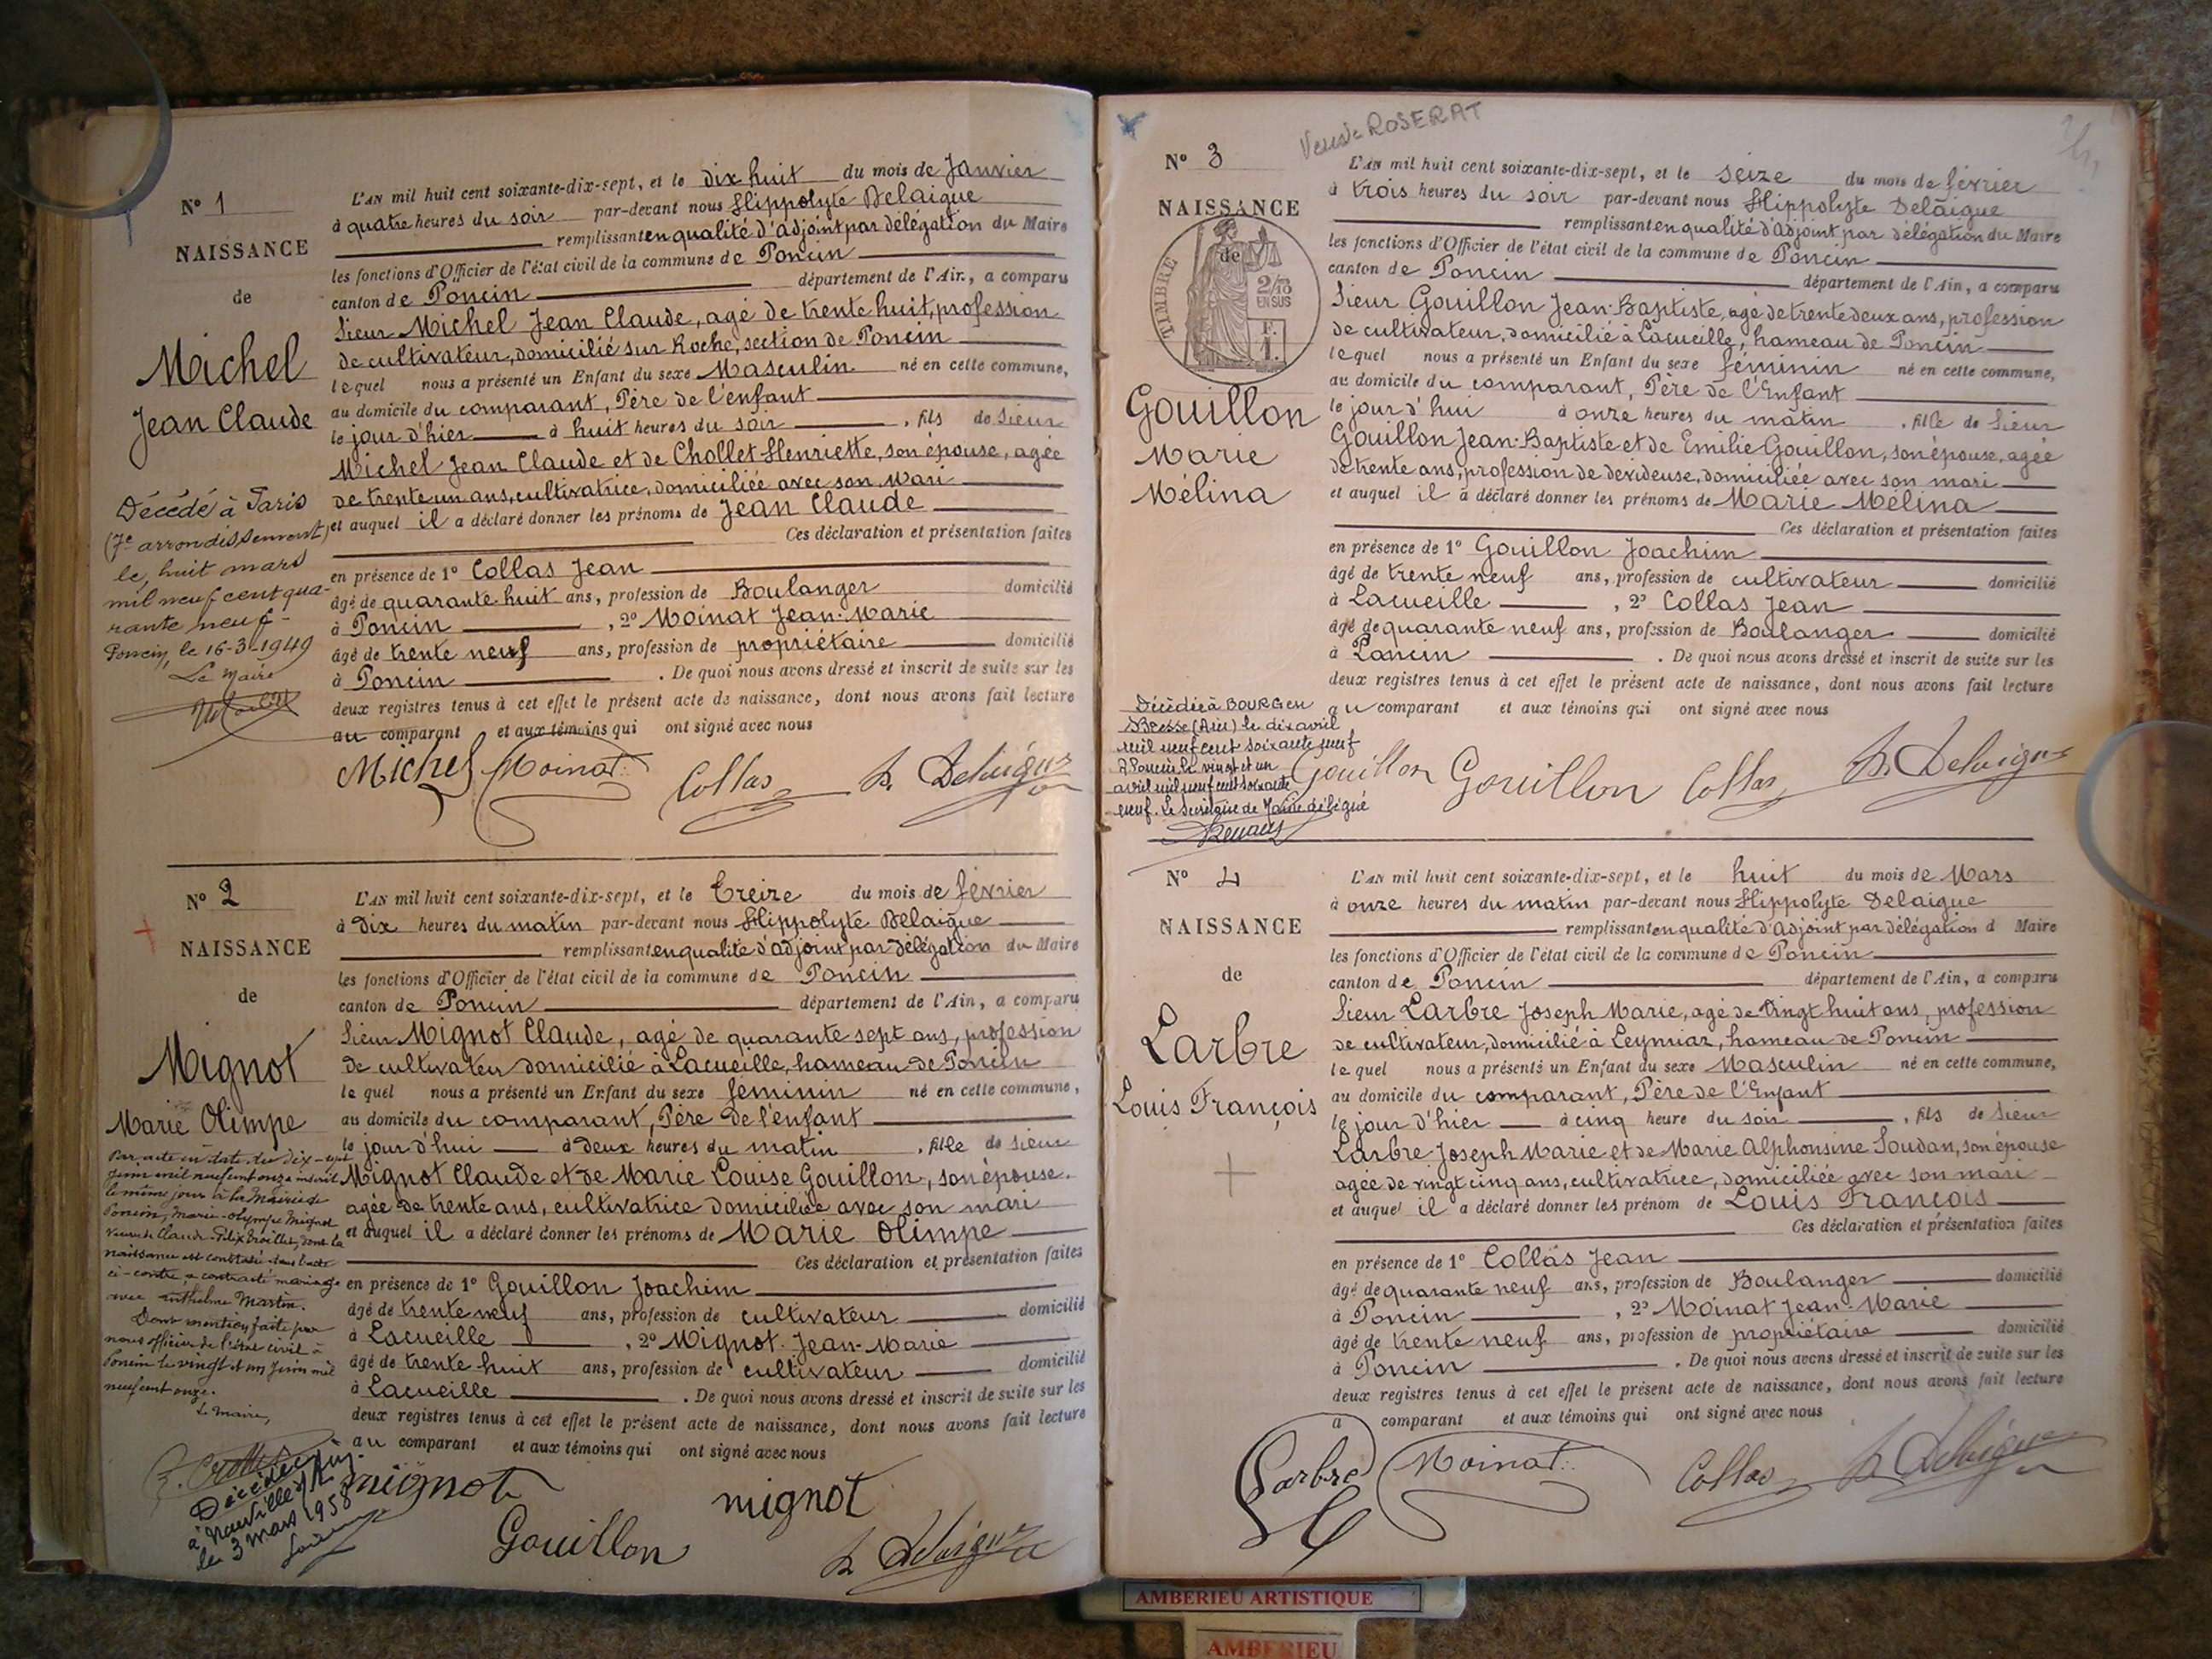 N° 1
NAISSANCE
de
Michel
Jean Claude
Décédé à Paris
(7e arrondissement)
le, huit mars
mil neuf cent qua-
rante neuf -
Poncin, le 16-3-1949
Le Maire
L'AN mil huit cent soixante-dix-sept, et le dix huit du mois de Janvier
à quatre heures du soir par-devant nous Hippolyte Delaigue
remplissant en qualité d'adjoint par délégation du Maire
les fonctions d'Officier de l'état civil de la commune de Poncin
canton de Poncin département de l'Ain, a comparu
Sieur Michel Jean Claude, agé de trente huit, profession
de cultivateur, domicilié sur Roche, section de Poncin
lequel nous a présenté un Enfant du sexe Masculin né en cette commune,
au domicile du comparant, Père de l'enfant
le jour d'hier à huit heures du soir, fils de Sieur
Michel Jean Claude et de Chollet Henriette, son épouse, agée
de trente un ans, cultivatrice, domiciliée avec son mari
et auquel il a déclaré donner les prénoms de Jean Claude
Ces déclaration et présentation faites
en présence de 1° Collas Jean
âgé de quarante huit ans, profession de Boulanger domicilié
à Poncin, 2° Moinat Jean-Marie
âgé de trente neuf ans, profession de propriétaire domicilié
à Poncin. De quoi nous avons dressé et inscrit de suite sur les
deux registres tenus à cet effet le présent acte de naissance, dont nous avons fait lecture
au comparant et aux témoins qui ont signé avec nous
Michel Moinat Collas h. Delaigue
N° 2
NAISSANCE
de
Mignot
Marie Olimpe
Par acte en date du dix-sept
Juin mil neuf cent onze inscrit
le même jour à la Mairie de
Poncin, Marie-Olympe Mignot
veuve de Claude-Félix, dont la
naissance est constatée dans l'acte
ci-contre, a contracté mariage
avec Anthelme Martin.
Dont mention faite par
nous officier de l'état civil à
Poncin le vingt et un Juin mil
neuf cent onze.
Le Maire,
Décédée
à Neuville s/Ain
le 3 mars 1958
L'AN mil huit cent soixante-dix-sept, et le treize du mois de février
à dix heures du matin par-devant nous Hippolyte Delaigue
remplissant en qualité d'adjoint par délégation du Maire
les fonctions d'Officier de l'état civil de la commune de Poncin
canton de Poncin département de l'Ain, a comparu
Sieur Mignot Claude, agé de quarante sept ans, profession
de cultivateur domicilié à Lacueille, hameau de Poncin
lequel nous a présenté un Enfant du sexe feminin né en cette commune,
au domicile du comparant, Père de l'enfant
le jour d'hui à deux heures du matin, fille de Sieur
Mignot Claude et de Marie Louise Gouillon, son épouse.
agée de trente ans, cultivatrice domiciliée avec son mari
et auquel il a déclaré donner les prénoms de Marie Olimpe
Ces déclaration et présentation faites
en présence de 1° Gouillon Joachim
âgé de trente neuf ans, profession de cultivateur domicilié
à Lacueille, 2° Mignot Jean-Marie
âgé de trente huit ans, profession de cultivateur domicilié
à Lacueille. De quoi nous avons dressé et inscrit de suite sur les
deux registres tenus à cet effet le présent acte de naissance, dont nous avons fait lecture
au comparant et aux témoins qui ont signé avec nous
mignot mignot
Gouillon h. Delaigue
Veuve ROSERAT
N° 3
NAISSANCE
de
TIMBRE
2/10
EN SUS
F.
1.
Gouillon
Marie
Mélina
Décédée à BOURG en
Bresse (Ain) le dix avril
mil neuf cent soixante neuf
A Poncin le vingt et un
avril mil neuf cent soixante
neuf. Le Secrétaire de Mairie délégué
L'AN mil huit cent soixante-dix-sept, et le seize du mois de février
à trois heures du soir par-devant nous Hippolyte Delaigue
remplissant en qualité d'adjoint par délégation du Maire
les fonctions d'Officier de l'état civil de la commune de Poncin
canton de Poncin département de l'Ain, a comparu
Sieur Gouillon Jean-Baptiste, agé de trente deux ans, profession
de cultivateur, domicilié à Lacueille, hameau de Poncin
lequel nous a présenté un Enfant du sexe féminin né en cette commune,
au domicile du comparant, Père de l'Enfant
le jour d'hui à onze heures du matin, fille de Sieur
Gouillon Jean-Baptiste et de Emilie Gouillon, son épouse, agée
de trente ans, profession de devideuse, domiciliée avec son mari
et auquel il a déclaré donner les prénoms de Marie Mélina
Ces déclaration et présentation faites
en présence de 1° Gouillon Joachim
âgé de trente neuf ans, profession de cultivateur domicilié
à Lacueille, 2° Collas Jean
âgé de quarante neuf ans, profession de Boulanger domicilié
à Poncin. De quoi nous avons dressé et inscrit de suite sur les
deux registres tenus à cet effet le présent acte de naissance, dont nous avons fait lecture
au comparant et aux témoins qui ont signé avec nous
Gouillon Gouillon Collas h. Delaigue
N° 4
NAISSANCE
de
Larbre
Louis François
L'AN mil huit cent soixante-dix-sept, et le huit du mois de Mars
à onze heures du matin par-devant nous Hippolyte Delaigue
remplissant en qualité d'adjoint par délégation d Maire
les fonctions d'Officier de l'état civil de la commune de Poncin
canton de Poncin département de l'Ain, a comparu
Sieur Larbre Joseph Marie, agé de vingt huit ans, profession
de cultivateur, domicilié à Leymiaz, hameau de Poncin
lequel nous a présenté un Enfant du sexe Masculin né en cette commune,
au domicile du comparant, Père de l'Enfant
le jour d'hier à cinq heure du soir, fils de Sieur
Larbre Joseph Marie et de Marie Alphonsine Soudan, son épouse
agée de vingt cinq ans, cultivatrice, domiciliée avec son mari
et auquel il a déclaré donner les prénom de Louis François
Ces déclaration et présentation faites
en présence de 1° Collas Jean
âgé de quarante neuf ans, profession de Boulanger domicilié
à Poncin, 2° Moinat Jean-Marie
âgé de trente neuf ans, profession de propriétaire domicilié
à Poncin. De quoi nous avons dressé et inscrit de suite sur les
deux registres tenus à cet effet le présent acte de naissance, dont nous avons fait lecture
a comparant et aux témoins qui ont signé avec nous
Larbre Moinat Collas h. Delaigue
AMBERIEU ARTISTIQUE
AMBERIEU